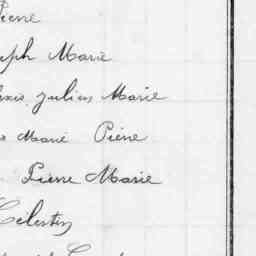 Pierre
eph Marie
exis Julien Marie
Marie Pierre
Pierre Marie
Célestin